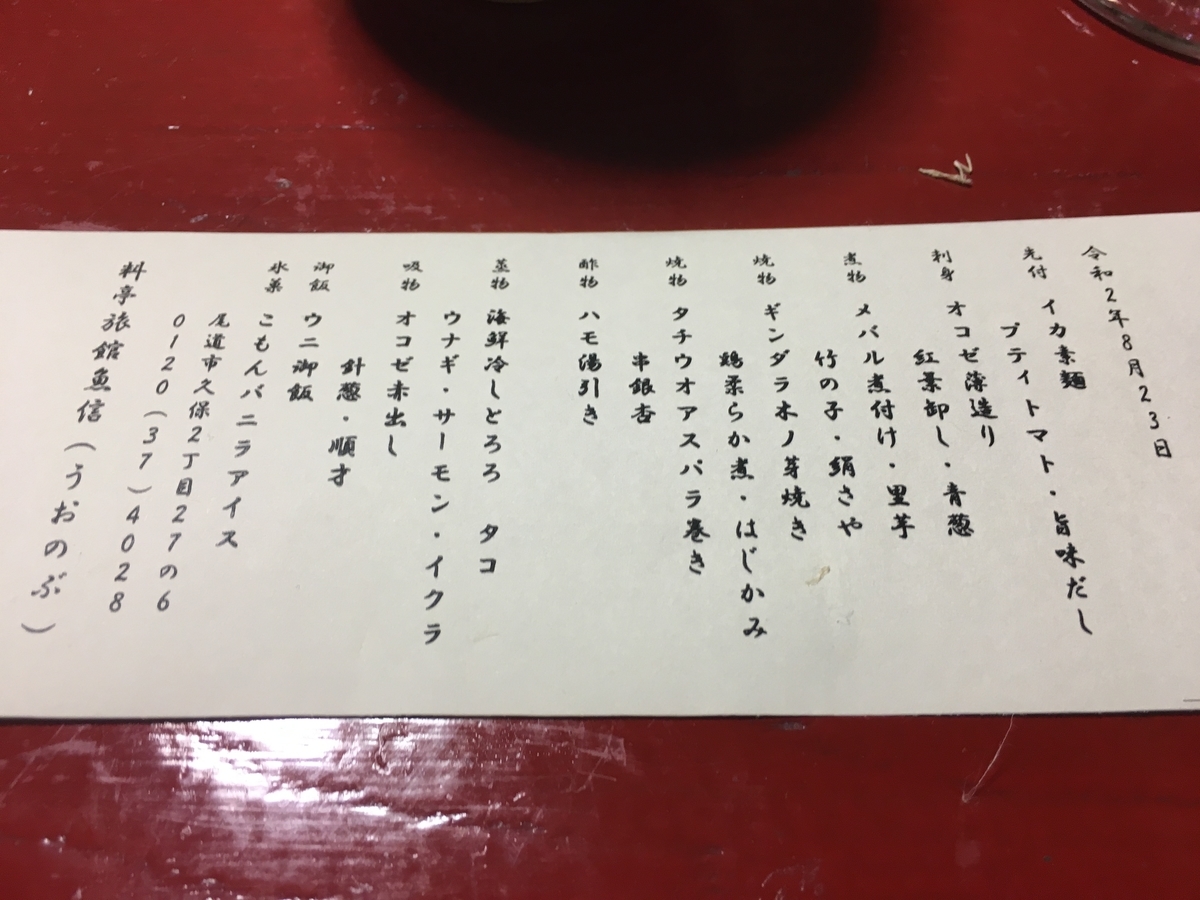 令和2年8月23日
先付 イカ素麺
プテイトマト・旨味だし
刺身 オコゼ薄造り
紅葉卸し・青葱
煮物 メバル煮付け・里芋
竹の子・絹さや
焼物 ギンダラ木ノ芽焼き
鶏柔らか煮・はじかみ
焼物 タチウオアスパラ巻き
串銀杏
酢物 ハモ湯引き
蒸物 海鮮冷しとろろ タコ
ウナギ・サーモン・イクラ
吸物 オコゼ赤出し
針葱・順才
御飯 ウニ御飯
氷菓 こもんバニラアイス
尾道市久保2丁目27の6
0120(37)4028
料亭旅館魚信(うおのぶ)